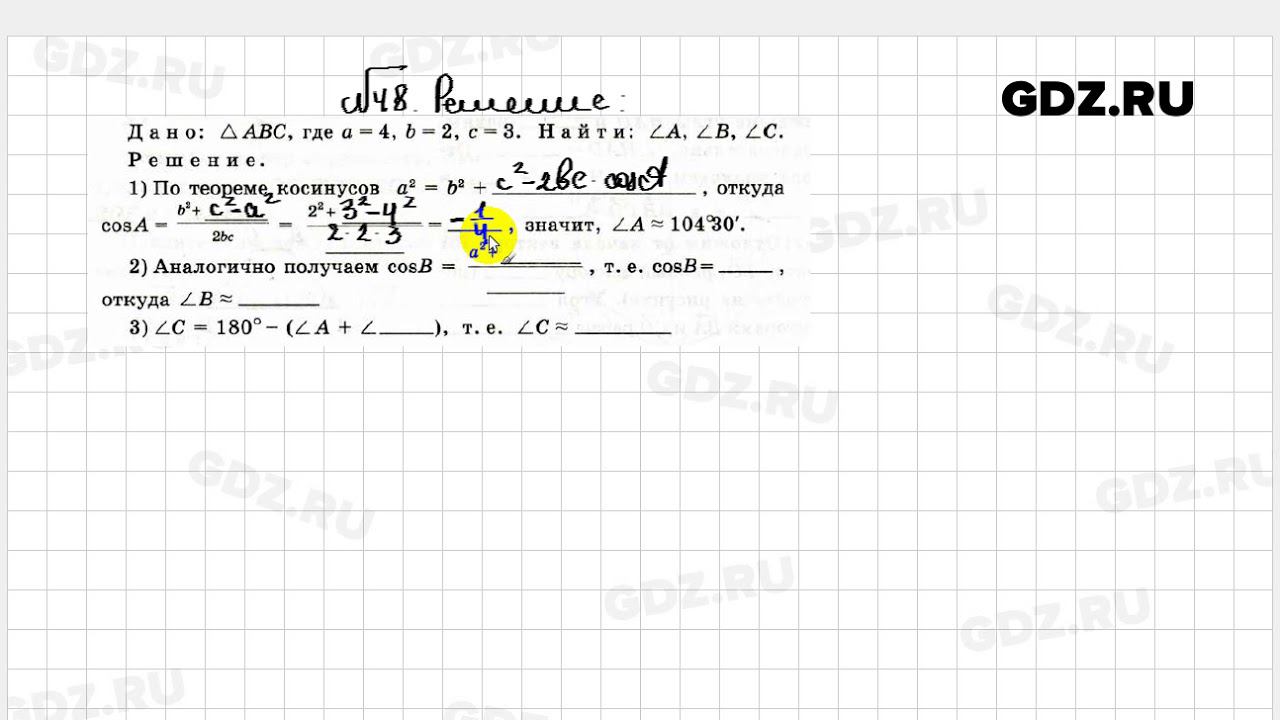 GDZ.RU
GDZ.RU
GDZ.RU
№48. Решение:
Дано: △ABC, где a = 4, b = 2, c = 3. Найти: ∠A, ∠B, ∠C.
Решение.
1) По теореме косинусов a² = b² + c² - 2bc · cosA, откуда
cosA = (b² + c² - a²)/(2bc) = (2² + 3² - 4²)/(2·2·3) = -1/4, значит, ∠A ≈ 104°30′.
2) Аналогично получаем cosB = a² + ____, т. е. cosB = ____,
откуда ∠B ≈ ____
3) ∠C = 180° – (∠A + ∠____), т. е. ∠C ≈ ____
GDZ.RU
GDZ.RU
GDZ.RU
GDZ.RU
GDZ.RU
GDZ.RU
GDZ.RU
GDZ.RU
GDZ.RU